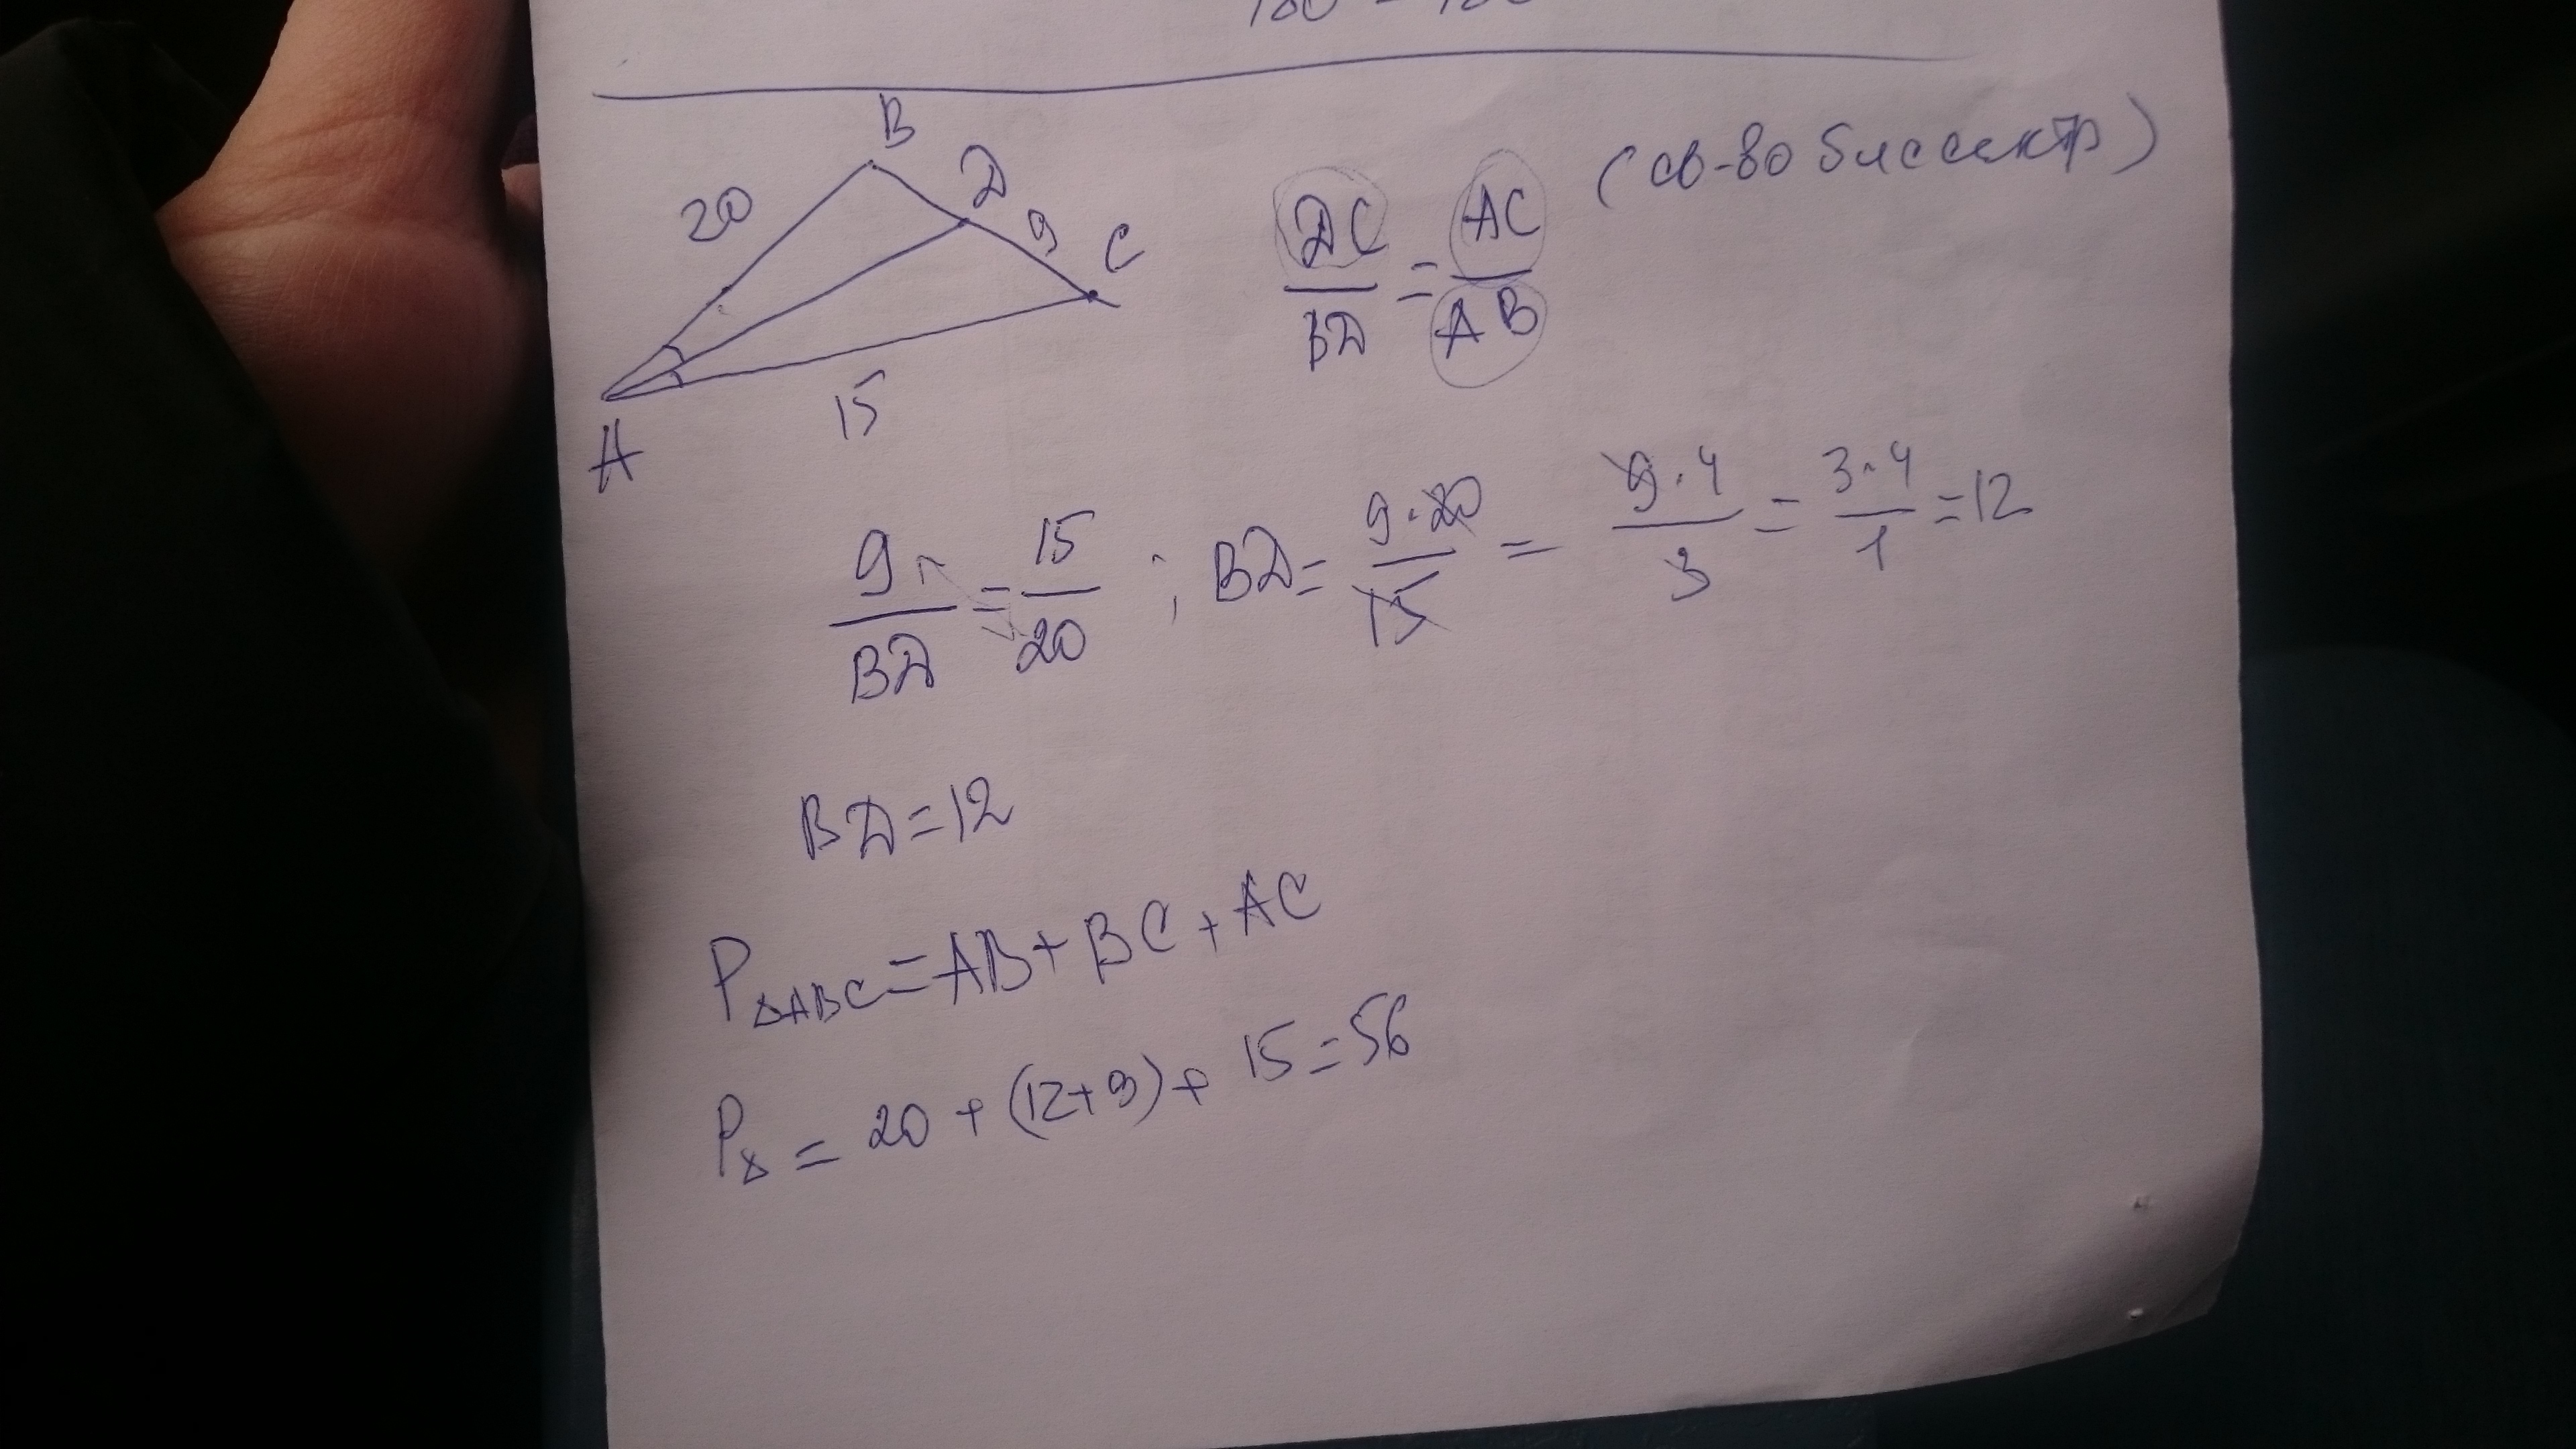 B
D
20
9
C
15
A
DC/BD = AC/AB (св-во биссектр)
9/BD = 15/20 ; BD = 9·20/15 = 9·4/3 = 3·4/1 = 12
BD = 12
P△ABC = AB + BC + AC
P△ = 20 + (12+9) + 15 = 56